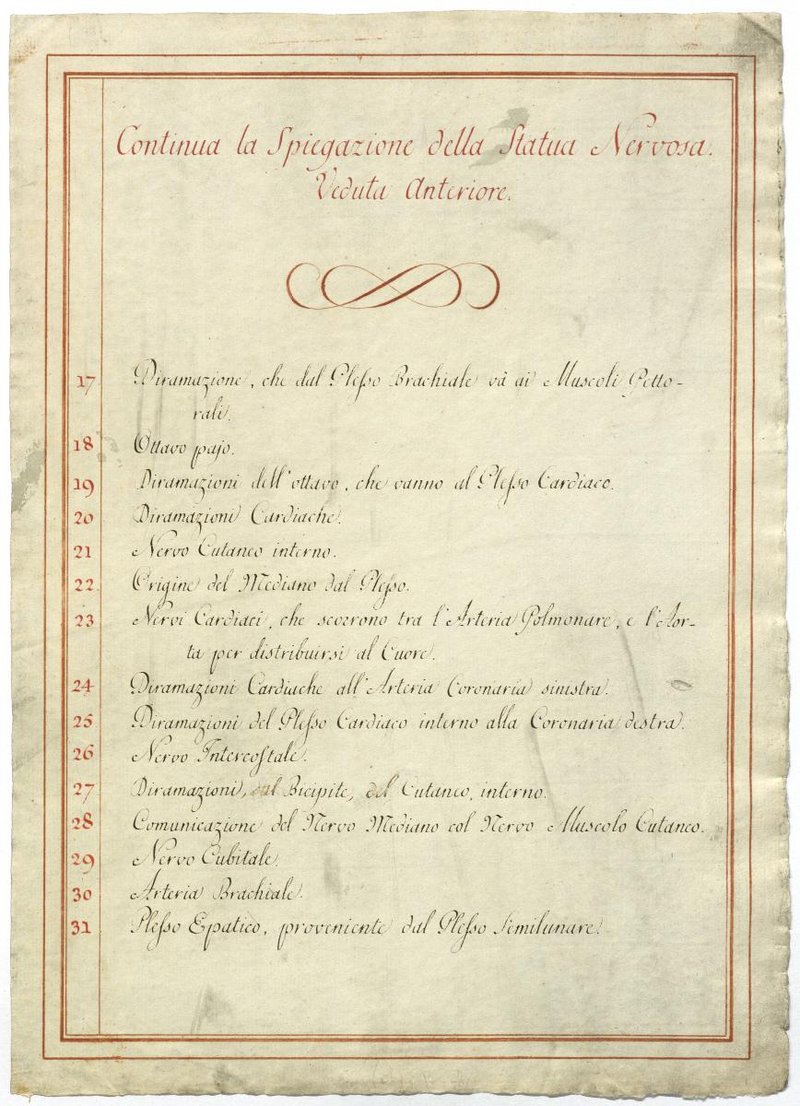 Continua la Spiegazione della Statua Nervosa.
Veduta Anteriore.
17 Diramazione, che dal Plesso Brachiale và ai Muscoli Petto-
rali.
18 Ottavo pajo.
19 Diramazioni dell'ottavo, che vanno al Plesso Cardiaco.
20 Diramazioni Cardiache.
21 Nervo Cutaneo interno.
22 Origine del Mediano dal Plesso.
23 Nervi Cardiaci, che scorrono tra l'Arteria Polmonare, e l'Aor-
ta per distribuirsi al Cuore.
24 Diramazioni Cardiache all'Arteria Coronaria sinistra.
25 Diramazioni del Plesso Cardiaco interno alla Coronaria destra.
26 Nervo Intercostale.
27 Diramazioni, al Bicipite, del Cutaneo, interno.
28 Comunicazione del Nervo Mediano col Nervo Muscolo Cutaneo.
29 Nervo Cubitale.
30 Arteria Brachiale.
31 Plesso Epatico, proveniente dal Plesso Semilunare.